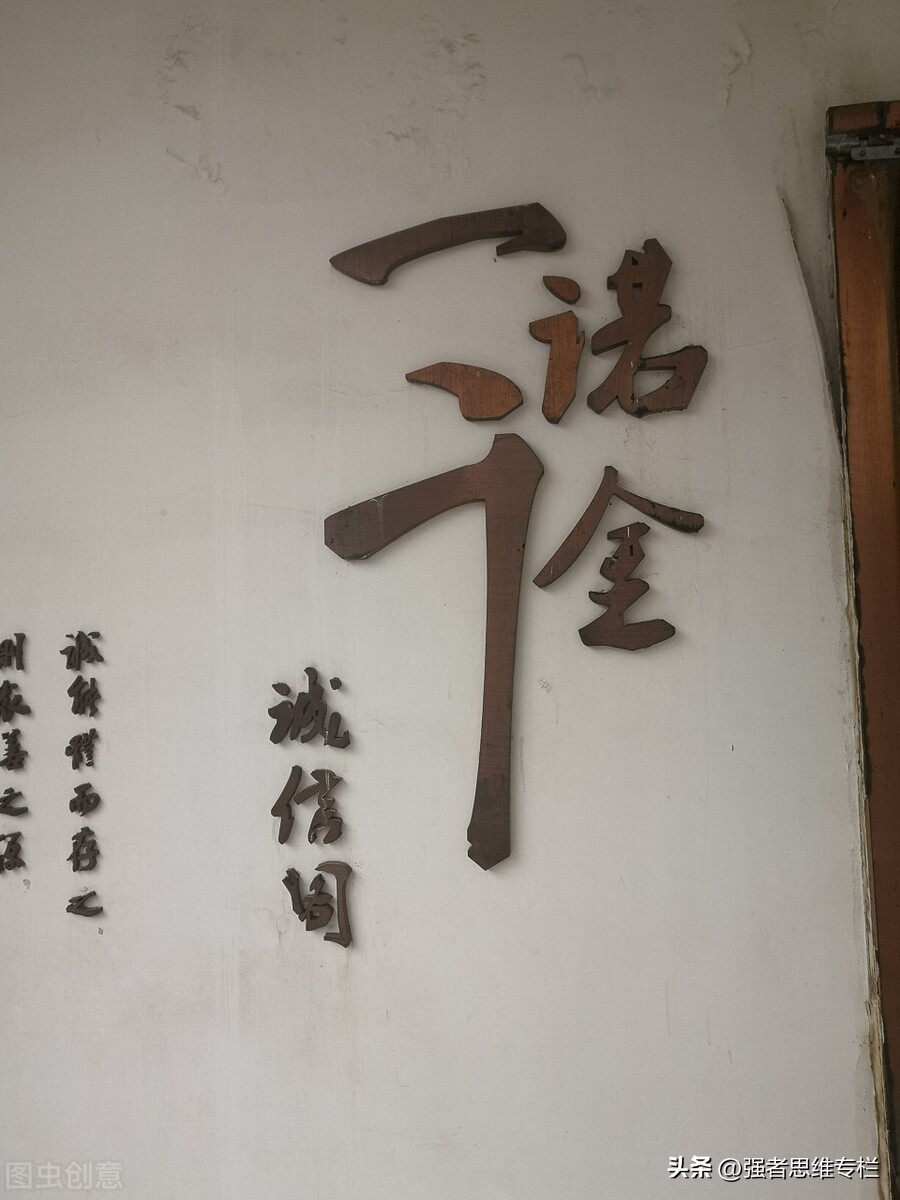 一诺
千金
诚信阁
诚能體而存之
则衆善之源
图虫创意
头条 @强者思维专栏